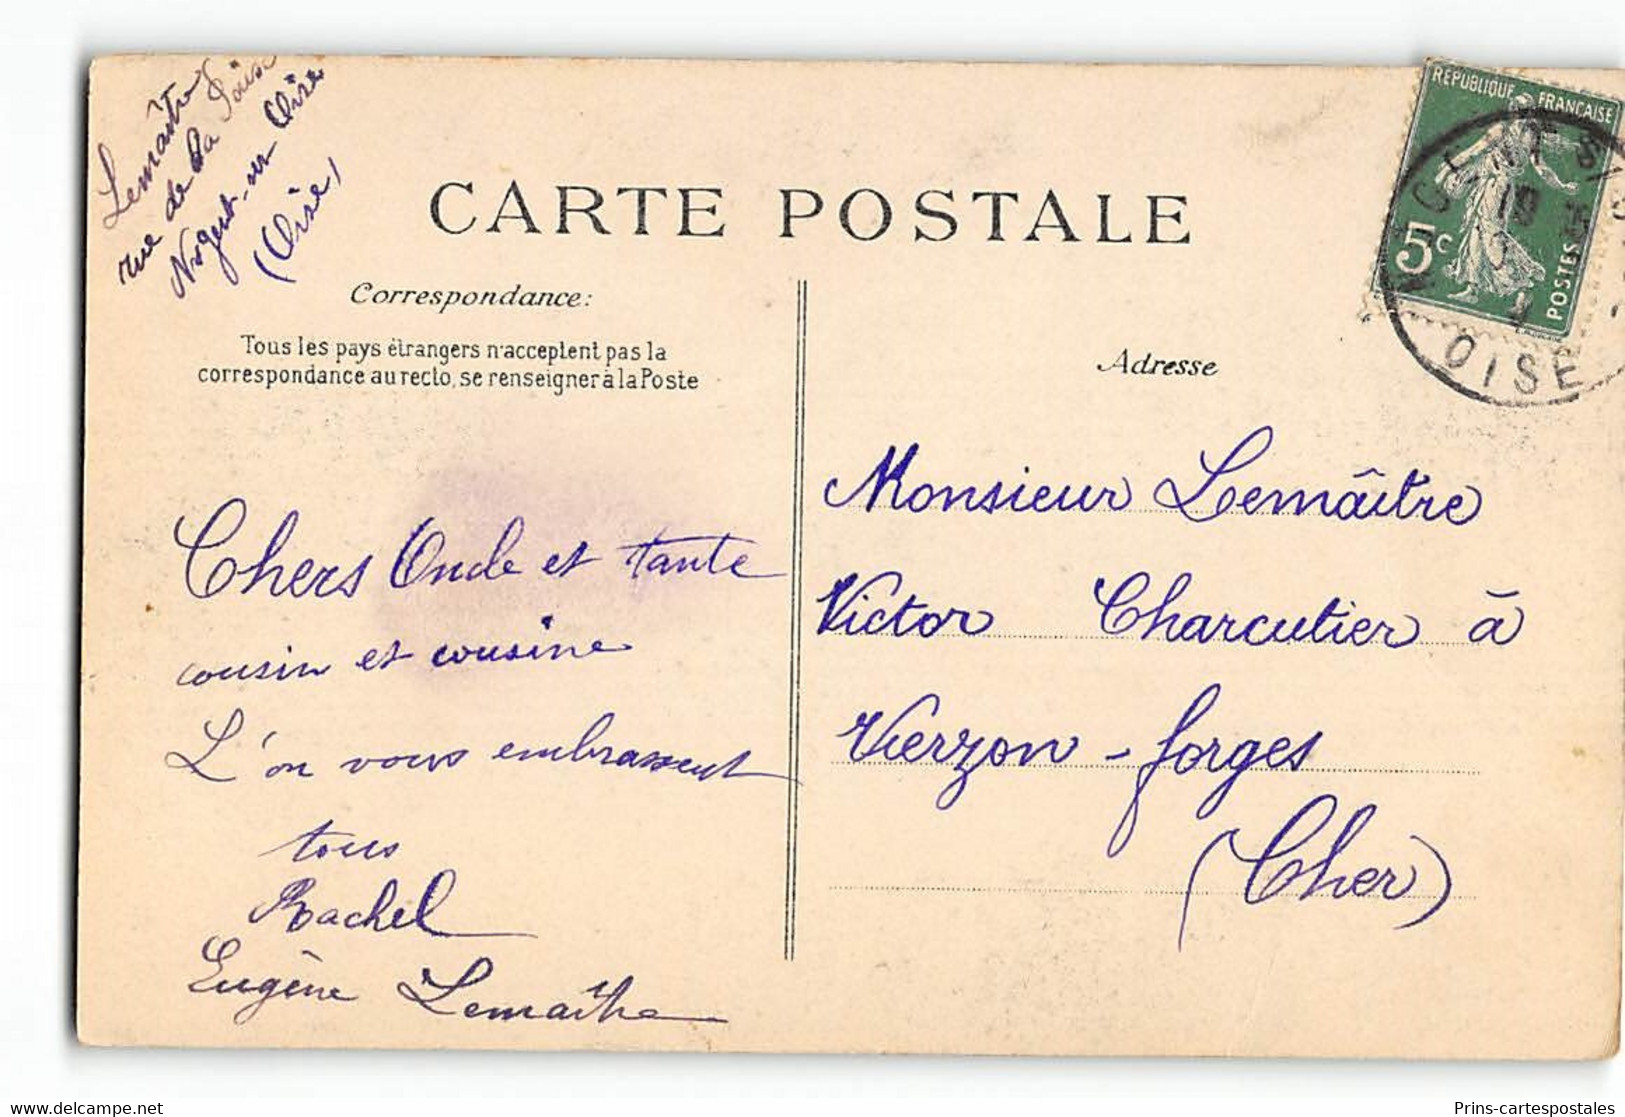 Lemaître
rue de la
Nogent-sur Oise
(Oise)
CARTE POSTALE
Correspondance:
Tous les pays étrangers n'acceptent pas la
correspondance au recto, se renseigner à la Poste
Adresse
RÉPUBLIQUE FRANÇAISE
5c
POSTES
OISE
Chers Oncle et tante
cousin et cousine
L'on vous embrassent
tous
Rachel
Eugène Lemaître
Monsieur Lemaître
Victor Charcutier à
Vierzon-forges
(Cher)
Prins-cartespostales
www.delcampe.net